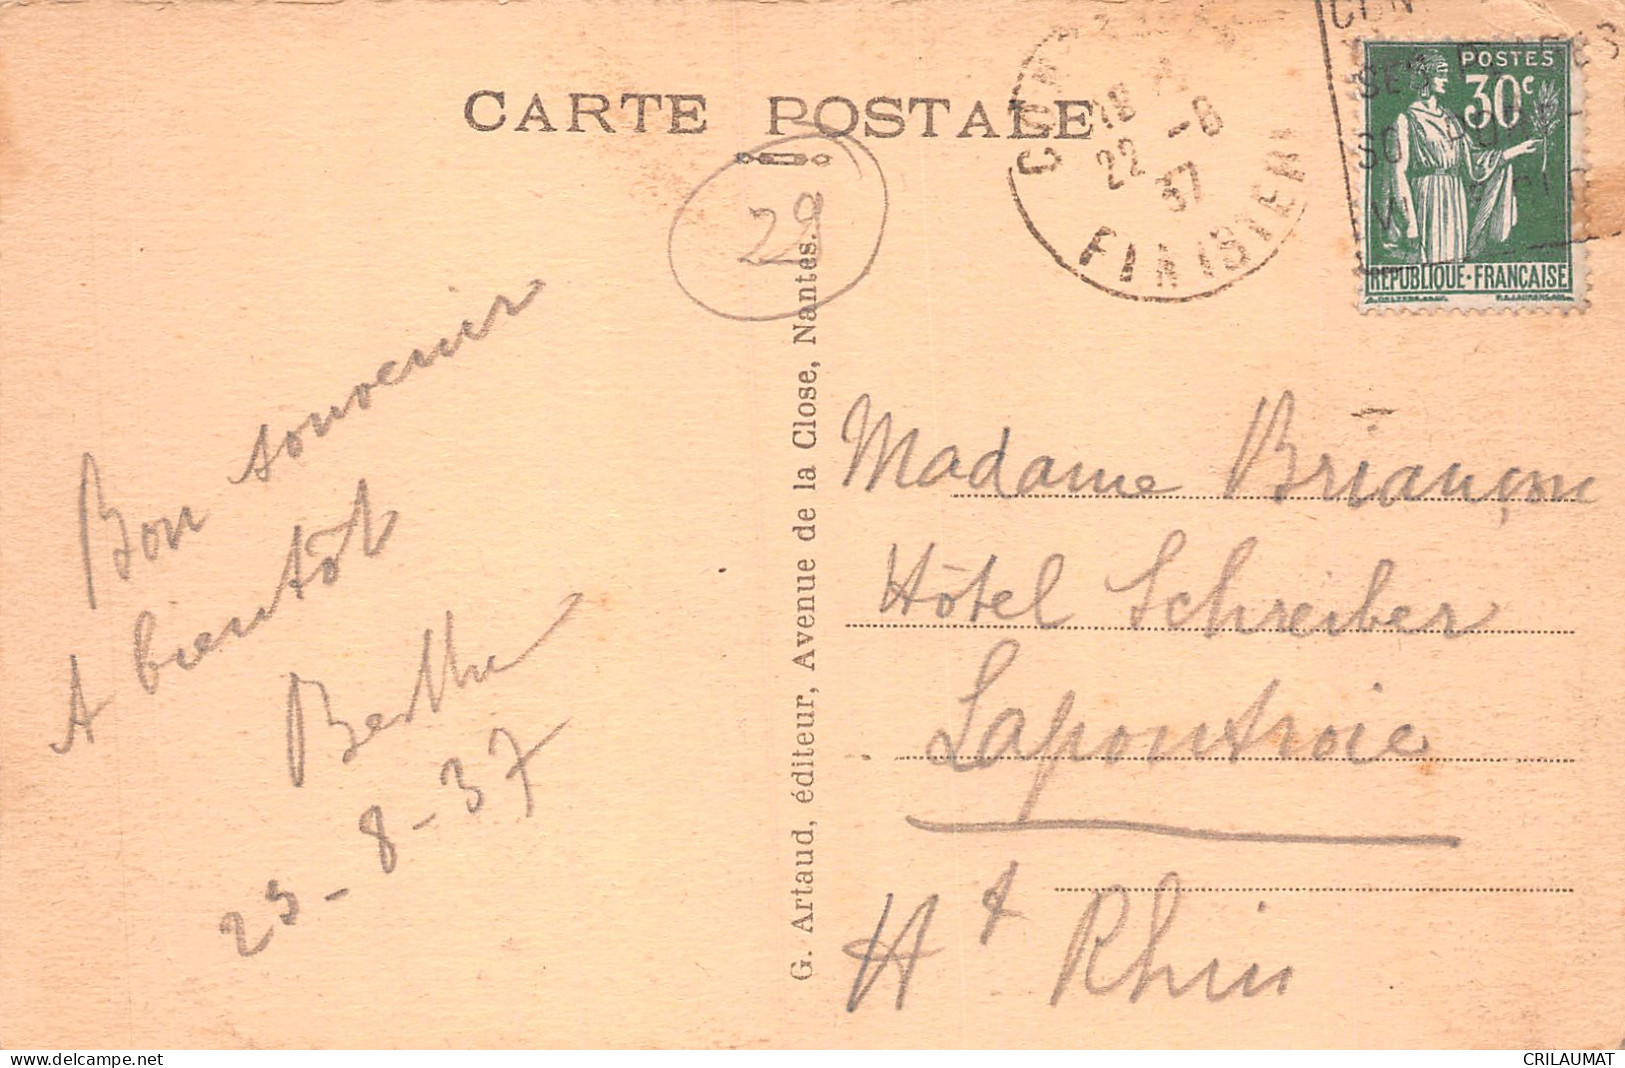 CARTE POSTALE
29
18
22 -8
37
FINISTERE
CON
POSTES
30c
REPUBLIQUE·FRANÇAISE
Bon souvenir
A bientôt
Berthe
25-8-37
G. Artaud, éditeur, Avenue de la Close, Nantes.
Madame Briançon
Hôtel Schreiber
Lapoutroie
Ht Rhin
delcampe.net
CRILAUMAT